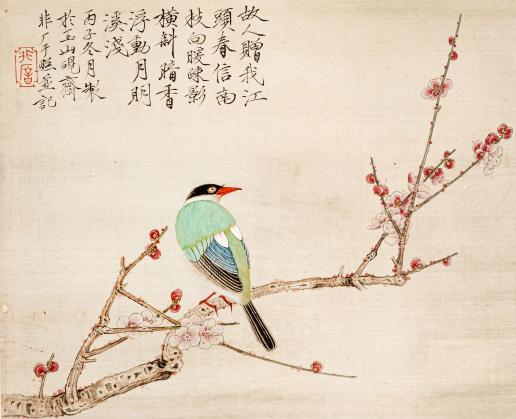 故人贈我江
頭春信南
枝向暖疎影
橫斜暗香
浮動月明
溪淺
丙子冬月製
於玉山硯齋
非厂于照並記
非厂